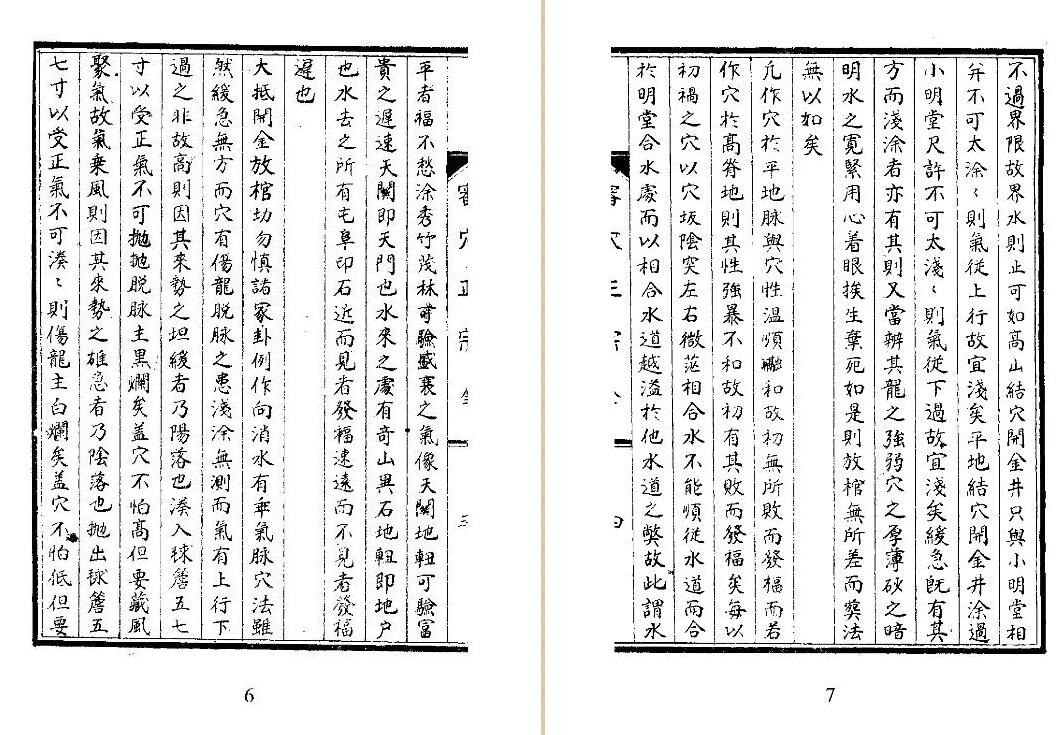 平者福不愁涂秀竹茂林可驗盛衰之氣像天關地軸可驗富
貴之遲速天關即天門也水來之處有奇山異石地軸即地户
也水去之所有屯阜印石近而見者發福速遠而不見者發福
遲也
大抵開金放棺切勿慎諸家卦例作向消水有乖氣脉穴法雖
然緩急無方而穴有傷龍脱脉之患淺涂無測而氣有上行下
過之非故高則因其來勢之坦緩者乃陽落也湊入毬簷五七
寸以受正氣不可抛抛脱脉主黑爛矣盖穴不怕高但要藏風
聚氣故氣乗風則因其來勢之雄急者乃陰落也抛出毬簷五
七寸以受正氣不可湊〻則傷龍主白爛矣盖穴不怕低但要
6
不過界限故界水則止可如高山結穴開金井只與小明堂相
弁不可太涂〻則氣從上行故宜淺矣平地結穴開金井涂過
小明堂尺許不可太淺〻則氣從下過故宜淺矣緩急既有其
方而淺涂者亦有其則又當辨其龍之強弱穴之厚薄砂之暗
明水之寛緊用心着眼挨生棄死如是則放棺無所差而塟法
無以如矣
凡作穴於平地脉與穴性温順融和故初無所敗而發福而若
作穴於高脊地則其性強暴不和故初有其敗而發福矣每以
初禍之穴以穴坂陰突左右微茫相合水不能順從水道而合
於明堂合水處而以相合水道越溢於他水道之弊故此謂水
7